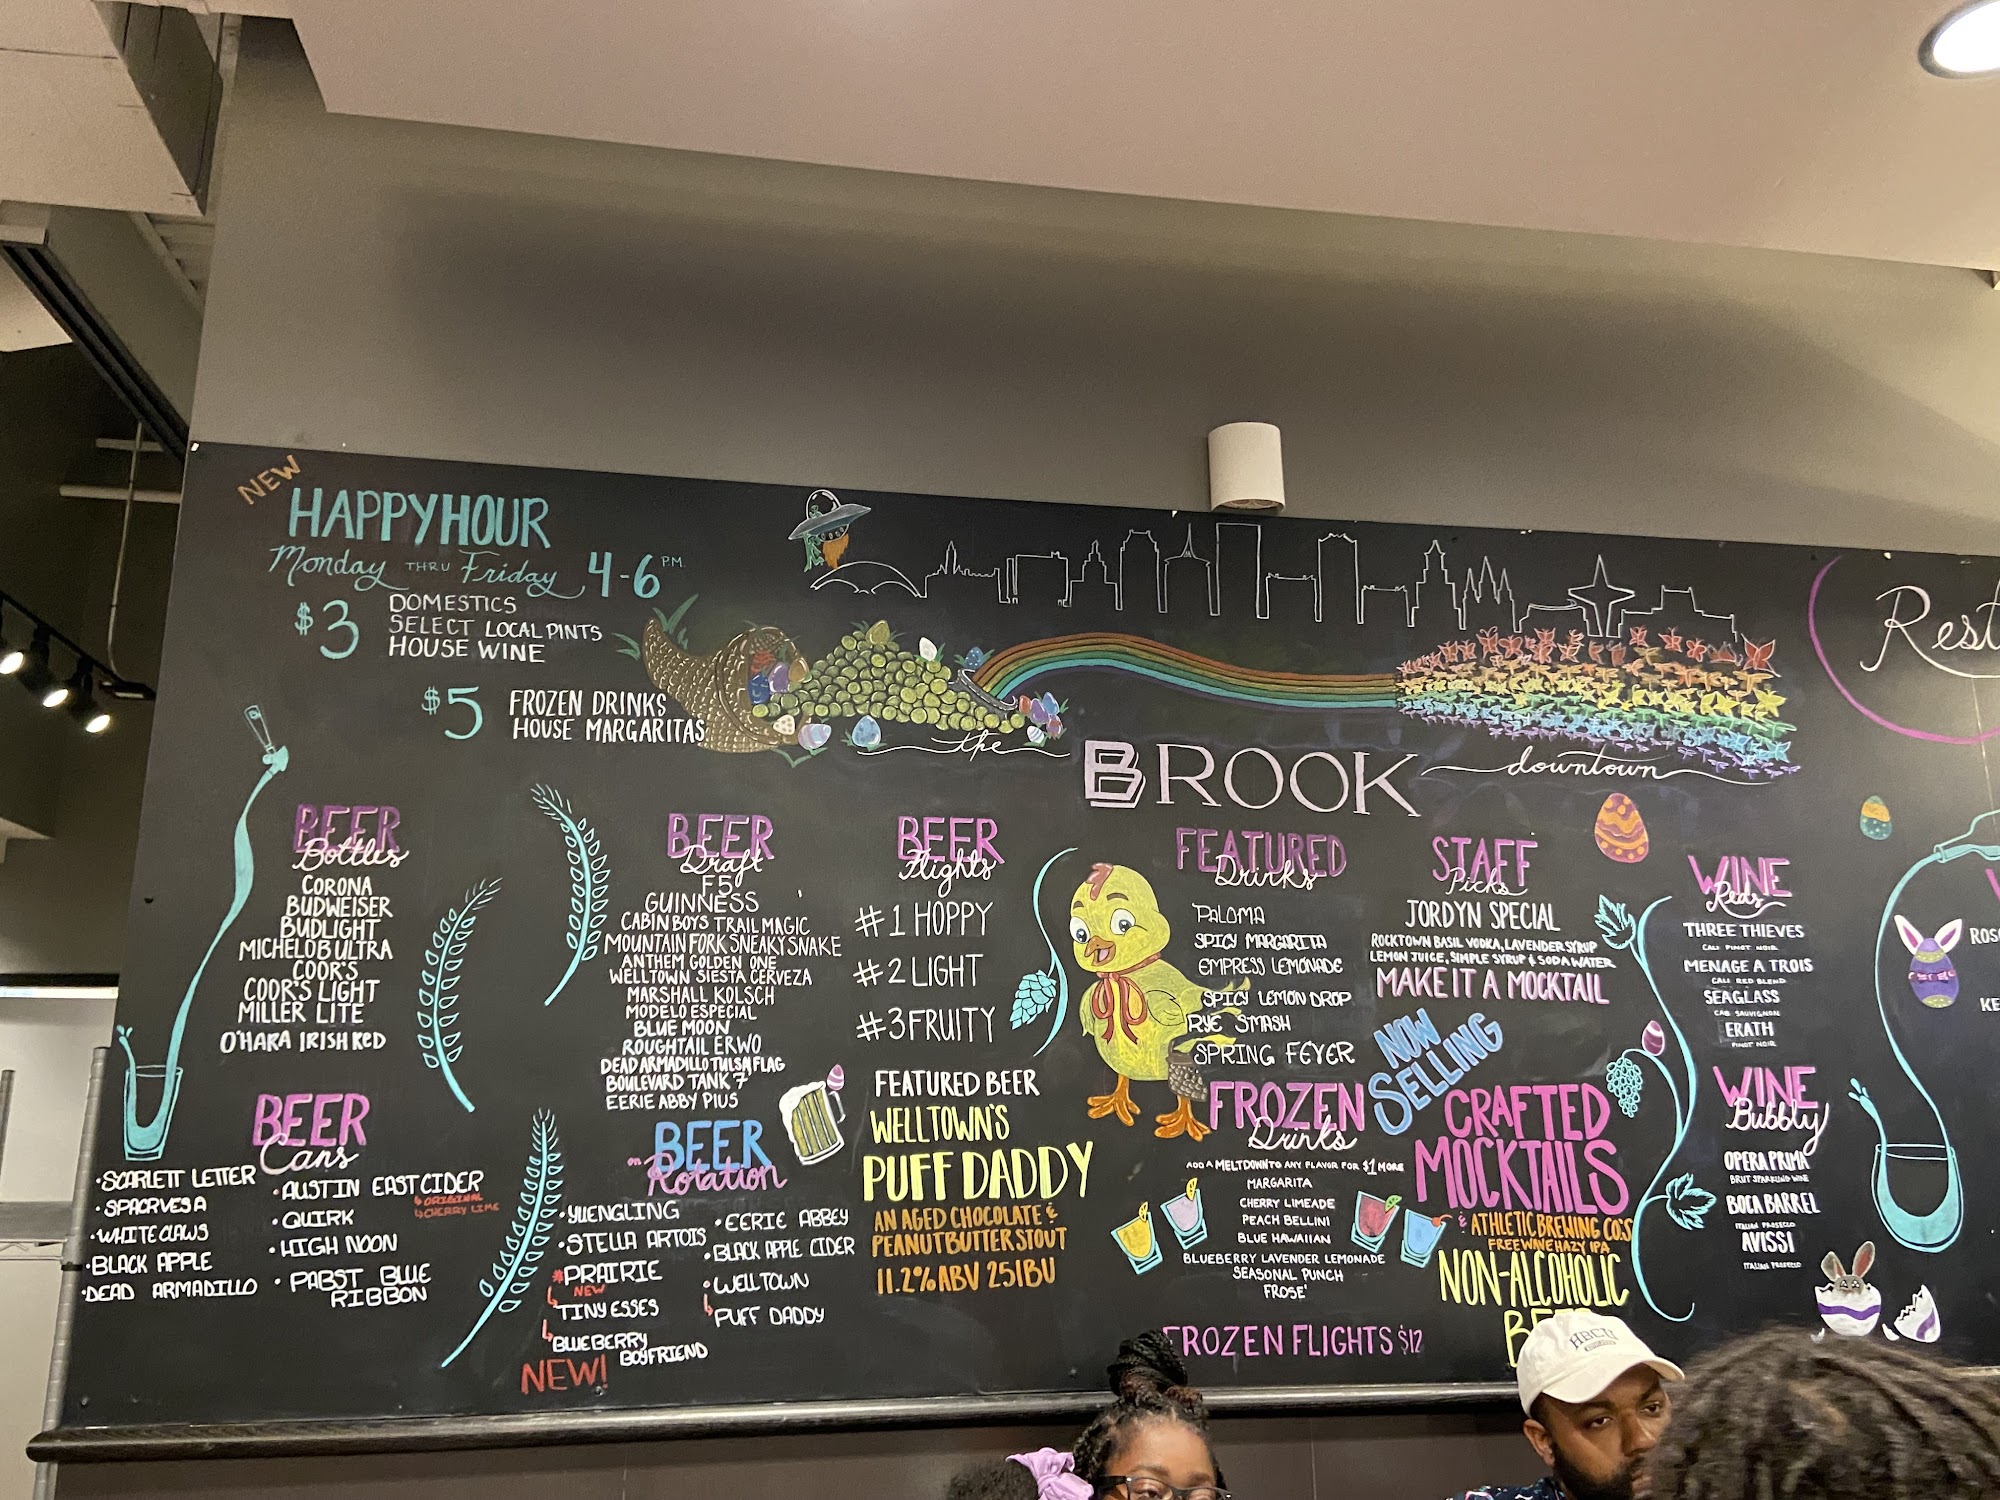 NEW
HAPPYHOUR
Monday THRU Friday 4-6 PM
$3
DOMESTICS
SELECT LOCAL PINTS
HOUSE WINE
$5
FROZEN DRINKS
HOUSE MARGARITAS
the
BROOK
downtown
Rest
BEER
Bottles
CORONA
BUDWEISER
BUDLIGHT
MICHELOB ULTRA
COOR'S
COOR'S LIGHT
MILLER LITE
O'HARA IRISH RED
BEER
Cans
·SCARLETT LETTER
·SPACRVESA
·WHITE CLAWS
·BLACK APPLE
·DEAD ARMADILLO
·AUSTIN EASTCIDER
ORIGINAL
CHERRY LIME
·QUIRK
·HIGH NOON
·PABST BLUE
RIBBON
BEER
Draft
F5
GUINNESS
CABIN BOYS TRAIL MAGIC
MOUNTAIN FORK SNEAKY SNAKE
ANTHEM GOLDEN ONE
WELLTOWN SIESTA CERVEZA
MARSHALL KOLSCH
MODELO ESPECIAL
BLUE MOON
ROUGHTAIL ERWO
DEAD ARMADILLO TULSA FLAG
BOULEVARD TANK 7
EERIE ABBY PIUS
BEER
on Rotation
·YUENGLING
·STELLA ARTOIS
*PRAIRIE
NEW
TINY ESSES
BLUEBERRY
BOYFRIEND
NEW!
·EERIE ABBEY
·BLACK APPLE CIDER
·WELLTOWN
PUFF DADDY
BEER
Flights
#1 HOPPY
#2 LIGHT
#3 FRUITY
FEATURED BEER
WELLTOWN'S
PUFF DADDY
AN AGED CHOCOLATE &
PEANUT BUTTER STOUT
11.2% ABV 25 IBU
FEATURED
Drinks
PALOMA
SPICY MARGARITA
EMPRESS LEMONADE
SPICY LEMON DROP
RYE SMASH
SPRING FEVER
FROZEN
Drinks
ADD A MELTDOWN TO ANY FLAVOR FOR $1 MORE
MARGARITA
CHERRY LIMEADE
PEACH BELLINI
BLUE HAWAIIAN
BLUEBERRY LAVENDER LEMONADE
SEASONAL PUNCH
FROSE'
FROZEN FLIGHTS $12
STAFF
Picks
JORDYN SPECIAL
ROCKTOWN BASIL VODKA, LAVENDER SYRUP
LEMON JUICE, SIMPLE SYRUP & SODA WATER
MAKE IT A MOCKTAIL
NOW
SELLING
CRAFTED
MOCKTAILS
& ATHLETIC BREWING CO'S
FREEWINE HAZY IPA
NON-ALCOHOLIC
BE
HBCU
WINE
Reds
THREE THIEVES
CALI PINOT NOIR
MENAGE A TROIS
CALI RED BLEND
SEAGLASS
CAB SAUVIGNON
ERATH
PINOT NOIR
WINE
Bubbly
OPERA PRIMA
BRUT SPARKLING WINE
BOCA BARREL
ITALIAN PROSECCO
AVISSI
ITALIAN PROSECCO
ROS
KE